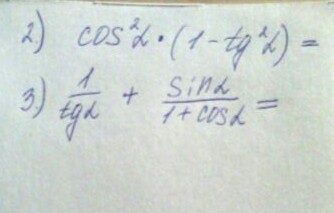 2) cos²α·(1-tg²α)=
3) 1/tgα + sinα/1+cosα=